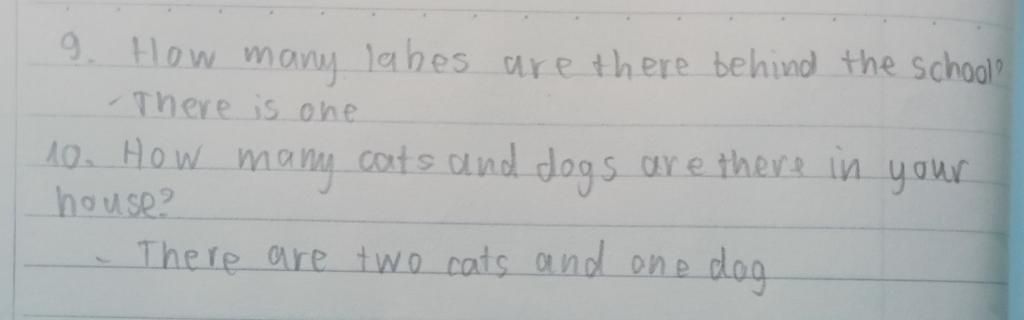 9. How many labes are there behind the school?
- There is one
10. How many cats and dogs are there in your
house?
- There are two cats and one dog